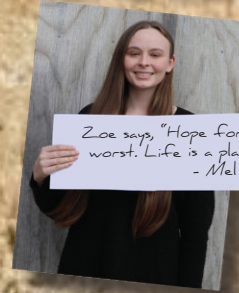 Zoe says, "Hope for
worst. Life is a pla
- Mel